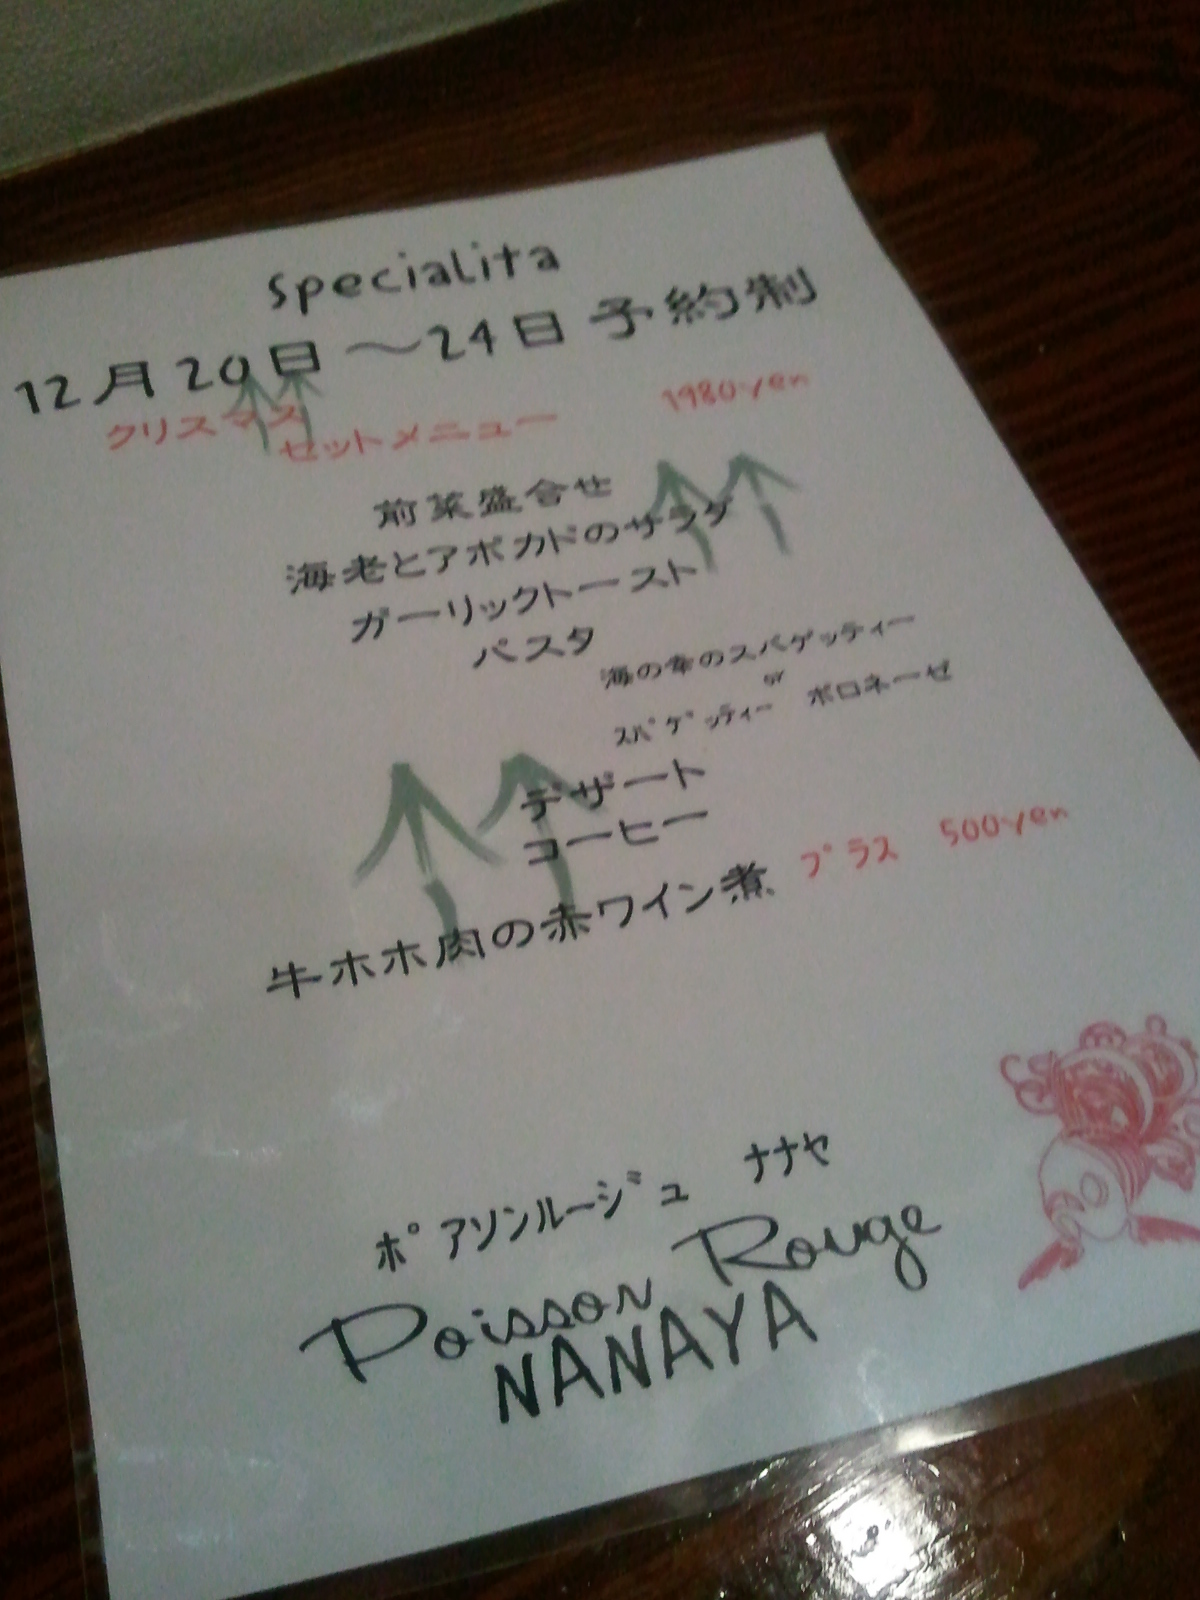 Specialita
12月20日～24日 予約制
クリスマス
セットメニュー 1980yen
前菜盛合せ
海老とアボカドのサラダ
ガーリックトースト
パスタ
海の幸のスパゲッティー
or
スパゲッティー ボロネーゼ
デザート
コーヒー
牛ホホ肉の赤ワイン煮 プラス 500yen
ポアソンルージュ ナナヤ
Poisson Rouge
NANAYA